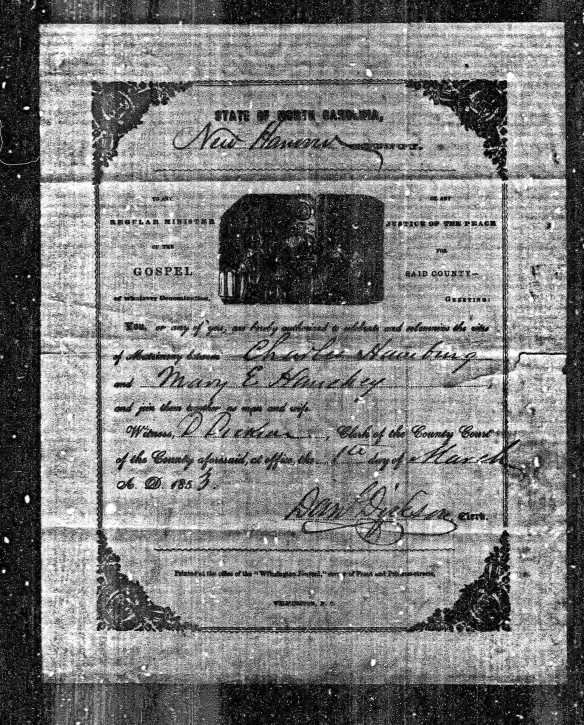 STATE OF NORTH CAROLINA,
New Hanover COUNTY.
TO ANY
REGULAR MINISTER
OF THE
GOSPEL
of whatever Denomination,
OR ANY
JUSTICE OF THE PEACE
FOR
SAID COUNTY—
GREETING:
You, or any of you, are hereby authorized to celebrate and solemnize the rites
of Matrimony between Charlie Hamburg
and Mary E Hanchey
and join them together as man and wife.
Witness, D Dickson, Clerk of the County Court
of the County aforesaid, at office, the 1st day of March
A. D. 1853.
Danl Dickson Clerk.
Printed at the office of the "Wilmington Journal," corner of Front and Princess-streets,
WILMINGTON, N. C.